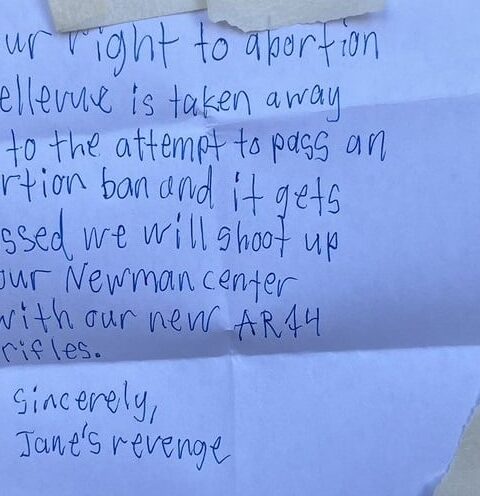 ur right to abortion
ellevue is taken away
to the attempt to pass an
rtion ban and it gets
ssed we will shoot up
our Newman center
with our new AR14
rifles.
Sincerely,
Jane's revenge